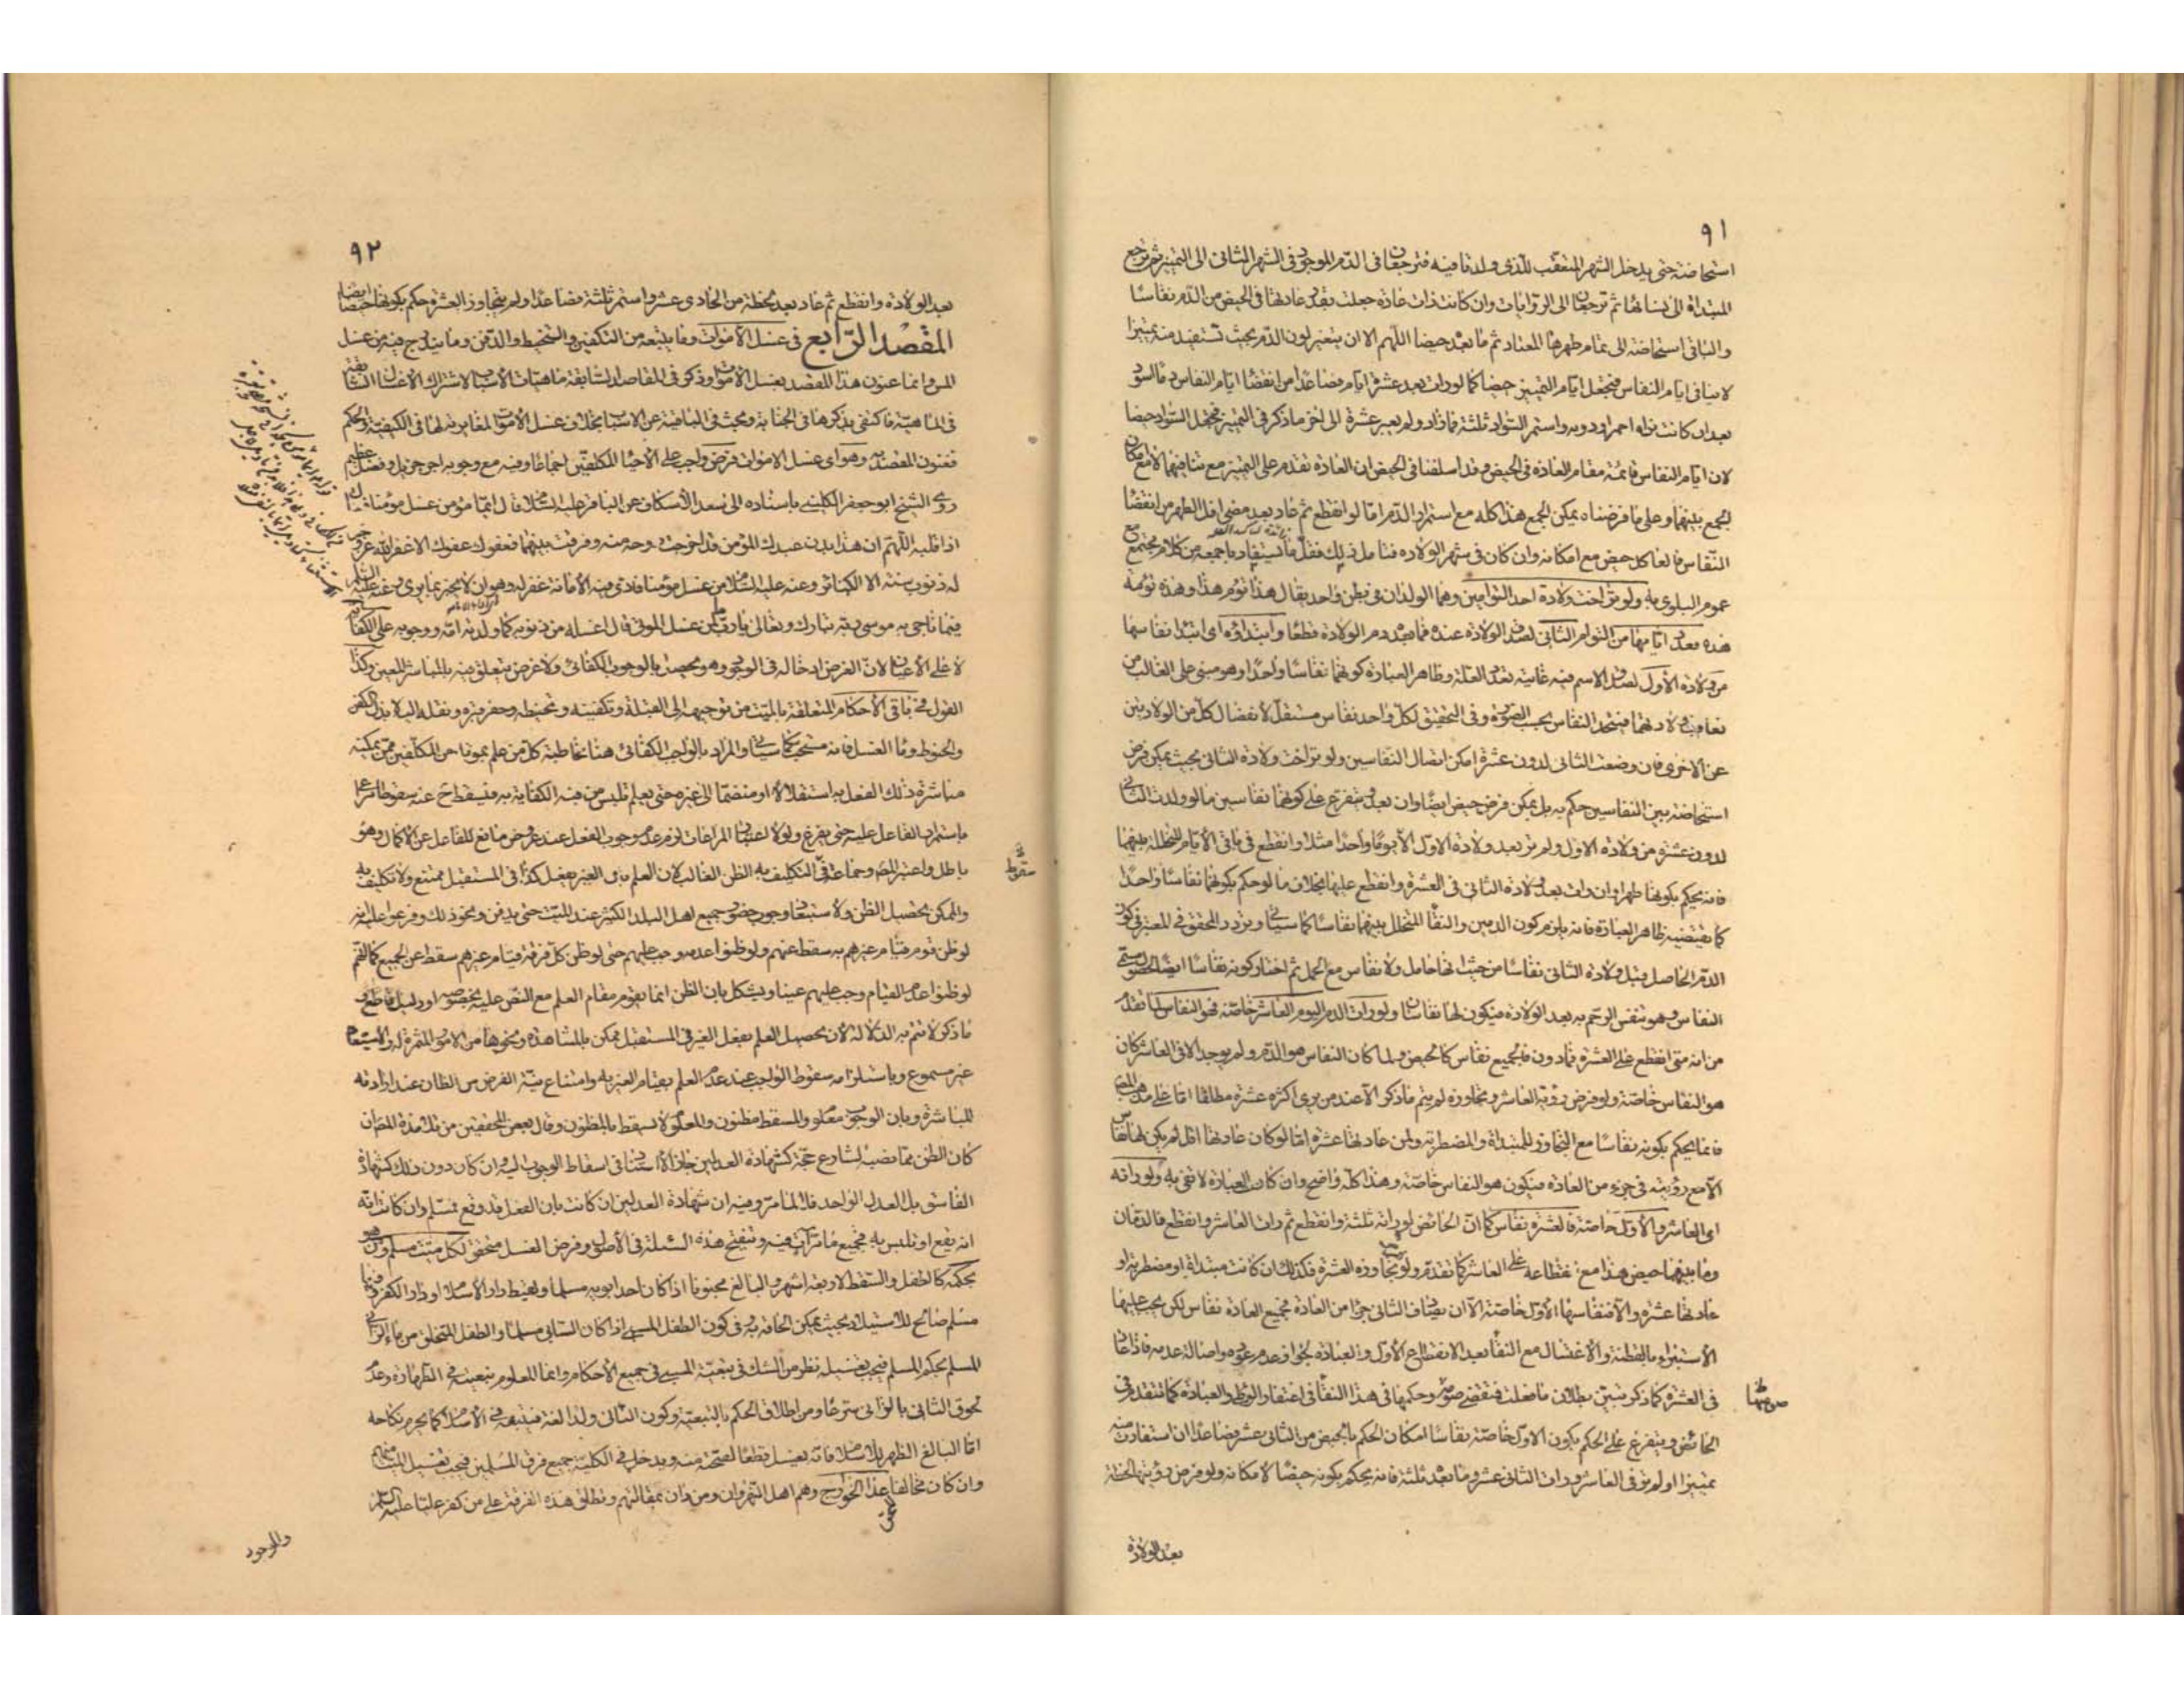 ٩١
استحاضة حتى يدخل الشهر المتعقب للذي ولدتا فيه فترجعان في الدم الموجود في الشهر الثاني الى التميز ثم ترجع
المبتداة الى نسائها ثم ترجعان الى الروايات وان كانت ذات عادة جعلت بقدر عادتها في الحيض من الدم نفاسا
والباقي استحاضة الى تمام طهرها المعتاد ثم ما بعده حيضا اللهم الا ان يتغير لون الدم بحيث تستفيد منه تميزا
لا ينافي ايام النفاس فتجعل ايام التميز حيضا كما لو رات بعد عشرة ايام فصاعدا من انقضاء ايام النفاس دما اسود
بعد ان كانت تراه احمر او دونه واستمر السواد ثلثة فما زاد ولم يعبر عشرة الى اخر ما ذكر في التميز فتجعل السواد حيضا
لان ايام النفاس قائمة مقام العادة في الحيض وقد اسلفنا في الحيض ان العادة تقدم على التميز مع تنافيهما لا مع امكان
الجمع بينهما وعلى ما فرضناه يمكن الجمع هذا كله مع استمرار الدم اما لو انقطع ثم عاد بعد مضي اقل الطهر من انقضاء
النفاس فالعا كل حيض مع امكانه وان كان في شهر الولادة فتامل ذلك فقل ما يستفاد باجمعه من كلام مجتمع مع
عموم البلوى به ولو تراخت ولادة احد التوامين وهما الولدان في بطن واحد يقال هذا توم هذا وهذه تومة
هذه فعدد ايامها من التوام الثاني لصدق الولادة عنده فما بعده دم الولادة قطعا وابتداؤه اى ابتدا نفاسها
من ولادة الاول لصدق الاسم فيه غايته تعدد العلة وظاهر العبارة كونهما نفاسا واحدا وهو مبني على الغالب من
تعاقب ولادتهما فيتحد النفاس بحسب الصورة وفي التحقيق لكل واحد نفاس مستقل لانفصال كل من الولادتين
عن الاخرى فان وضعت الثاني لدون عشرة امكن اتصال النفاسين ولو تراخت ولادة الثاني بحيث يمكن فرض
استحاضة بين النفاسين حكم به بل يمكن فرض حيض ايضا وان بعد ويتفرع على كونهما نفاسين ما لو ولدت الثاني
لدون عشرة من ولادة الاول ولم تر بعد ولادة الاول الا يوما واحدا مثلا وانقطع في باقي الايام المتخللة بينهما
فانه يحكم بكونها طهرا وان رات بعد ولادة الثاني في العشرة وانقطع عليها بخلاف ما لو حكم بكونهما نفاسا واحدا
كما يقتضيه ظاهر العبارة فانه يلزم كون الدمين والنقاء المتخلل بينهما نفاسا كما سياتي وتردد المحقق في المعتبر في كون
الدم الحاصل قبل ولادة الثاني نفاسا من حيث انها حامل ولا نفاس مع الحمل ثم اختار كونه نفاسا ايضا لحصول مسمى
النفاس وهو تنفس الرحم به بعد الولادة فيكون لها نفاسان ولو رات الدم اليوم العاشر خاصة فهو النفاس لما تقدم
من انه متى انقطع على العشرة فما دون فالجميع نفاس كالحيض ولما كان النفاس هو الدم ولم يوجد الا في العاشر كان
هو النفاس خاصة ولو فرض رؤية العاشر وتجاوزه لم يتم ما ذكر الا عند من يرى اكثره عشرة مطلقا اما على مذهب المص
فانما يحكم بكونه نفاسا مع التجاوز للمبتداة والمضطربة ولمن عادتها عشرة اما لو كان عادتها اقل لم يكن لها نفاس
الا مع رؤيته في جزء من العادة فيكون هو النفاس خاصة وهذا كله واضح وان كانت العبارة لا تفي به ولو راته
اى العاشر والاول خاصة فالعشرة نفاس كما ان الحائض لو راته ثلثة وانقطع ثم رات العاشر وانقطع فالدمان
وما بينهما حيض هذا مع انقطاعه على العاشر كما تقدم ولو تجاوزه العشرة فكذلك ان كانت مبتداة او مضطربة او
عادتها عشرة والا فنفاسها الاول خاصة الا ان يصادف الثاني جزءا من العادة فجميع العادة نفاس لكن يجب عليها
الاستبراء بالقطنة والاغتسال مع النقاء بعد الانقطاع الاول والعبادة لجواز عدم عوده واصالة عدمه فاذا عاد
في العشرة كما ذكر تبين بطلان ما فعلت فتقضي صومها وحكمها في هذا النقاء في اغتفار الوطء والعبادة كما تتقدم في
الحائض ويتفرع على الحكم بكون الاول خاصة نفاسا امكان الحكم بالحيض من الثاني عشر فصاعدا ان استفادت منه
تميزا او لم تر في العاشر ورات الثاني عشر وما بعده ثلثة فانه يحكم بكونه حيضا لامكانه ولو فرض رؤيتها لحظة
بعد الولادة
٩٢
بعد الولادة وانقطع ثم عاد بعد لحظة من الحادي عشر واستمر ثلثة فصاعدا ولم يتجاوز العشرة حكم بكونها حيضا ايضا
المقصد الرابع في غسل الاموات وما يتبعه من التكفين والتحنيط والدفن وما يندرج فيه من غسل
المس وانما عنون هذا المقصد بغسل الاموات وذكر في المقاصد السابقة ماهيات الاسباب لاشتراك الاغسال السابقة
في الماهية فاكتفى بذكرها في الجنابة وبحث في الباقية عن الاسباب بخلاف غسل الاموات لمغايرته لها في الكيفية والحكم
فعنون المقصد به وهو اى غسل الاموات فرض واجب على الاحياء المكلفين اجماعا وفيه مع وجوبه اجر جزيل وفضل عظيم
روى الشيخ ابو جعفر الكليني باسناده الى سعد الاسكاف عن الباقر عليه السلام قال ايما مؤمن غسل مؤمنا فقال
اذا قلبه اللهم ان هذا بدن عبدك المؤمن قد اخرجت روحه منه وفرقت بينهما فعفوك عفوك الا غفر الله عز وجل
له ذنوب سنة الا الكبائر وعنه عليه السلام من غسل مؤمنا فادى فيه الامانة غفر له وهو ان لا يخبر بما يرى وعنه عليه السلم
فيما ناجى به موسى ربه تبارك وتعالى يا رب ما لمن غسل الموتى قال اغسله من ذنوبه كما ولدته امه ووجوبه على الكفاية
لا على الاعيان لان الغرض ادخاله في الوجود وهو يحصل بالوجوب الكفائي ولا غرض يتعلق فيه بالمباشر المعين وكذا
القول في باقي الاحكام المتعلقة بالميت من توجيهه الى القبلة وتكفينه وتحنيطه وحفر قبره ونقله اليه لا بذل الكفن
والحنوط وماء الغسل فانه مستحب كما سياتي والمراد بالواجب الكفائي هنا مخاطبة كل من علم بموته من المكلفين ممن يمكنه
مباشرة ذلك الفعل به استقلالا او منضما الى غيره حتى يعلم تلبس من فيه الكفاية به فيسقط ح عنه سقوطا مراعا
باستمرار الفاعل عليه حتى يفرغ ولولا اعتبار المراعات لزم عدم وجوب الفعل عند عروض مانع للفاعل عن الاكمال وهو
باطل واعتبر المص وجماعة في التكليف به الظن الغالب لان العلم بان الغير يفعل كذا في المستقبل ممتنع ولا تكليف به
والممكن تحصيل الظن ولاستبعاد وجوب حضور جميع اهل البلد الكثير عند الميت حتى يدفن ونحو ذلك وفرعوا عليه انه
لو ظن قوم قيام غيرهم به سقط عنهم ولو ظنوا عدمه وجب عليهم حتى لو ظن كل فرقة قيام غيرهم سقط عن الجميع كما انهم
لو ظنوا عدم القيام وجب عليهم عينا ويشكل بان الظن انما يقوم مقام العلم مع النص عليه بخصوصه او دليل قاطع و
ما ذكر لا تتم به الدلالة لان تحصيل العلم بفعل الغير في المستقبل ممكن بالمشاهدة ونحوها من الامور المثمرة له والاستبعاد
غير مسموع وباستلزامه سقوط الواجب عند عدم العلم بقيام الغير به وامتناع نية الفرض من الظان عند ارادته
المباشرة وبان الوجوب معلوم والمسقط مظنون والمعلوم لا يسقط بالمظنون وقال بعض المحققين من تلامذة المص ان
كان الظن مما نصبه الشارع حجة كشهادة العدلين جاز الاستناد في اسقاط الوجوب اليه وان كان دون ذلك كشهادة
الفاسق بل العدل الواحد فلا لما مر وفيه ان شهادة العدلين ان كانت بان الفعل قد وقع فمسلم وان كانت انه
انه يقع او تلبس به فجميع ما مر آت فيه وتنقيح هذه المسئلة في الاصول وفرض الغسل متحقق لكل ميت مسلم ومن هو
بحكمه كالطفل والسقط لاربعة اشهر والبالغ مجنونا اذا كان احد ابويه مسلما ولقيط دار الاسلام او دار الكفر وفيها
مسلم صالح للاستيلاد بحيث يمكن الحاقه به وفي كون الطفل المسبي اذا كان السابي مسلما والطفل المتخلق من ماء الزاني
المسلم بحكم المسلم فيجب تغسيله نظر من الشك في تبعية المسبي في جميع الاحكام وانما المعلوم تبعيته في الطهارة وعدم
لحوق الثاني بالزاني شرعا ومن اطلاق الحكم بالتبعية وكون الثاني ولدا لغة فيتبعه في الاسلام كما يحرم نكاحه
اما البالغ المظهر للاسلام فانه يغسل قطعا لصحته منه ويدخل في الكلية جميع فرق المسلمين فيجب تغسيل الميت منهم
وان كان مخالفا عدا الخوارج وهم اهل النهروان ومن دان بمقالتهم وتطلق هذه الفرقة على من كفر عليا عليه السلم